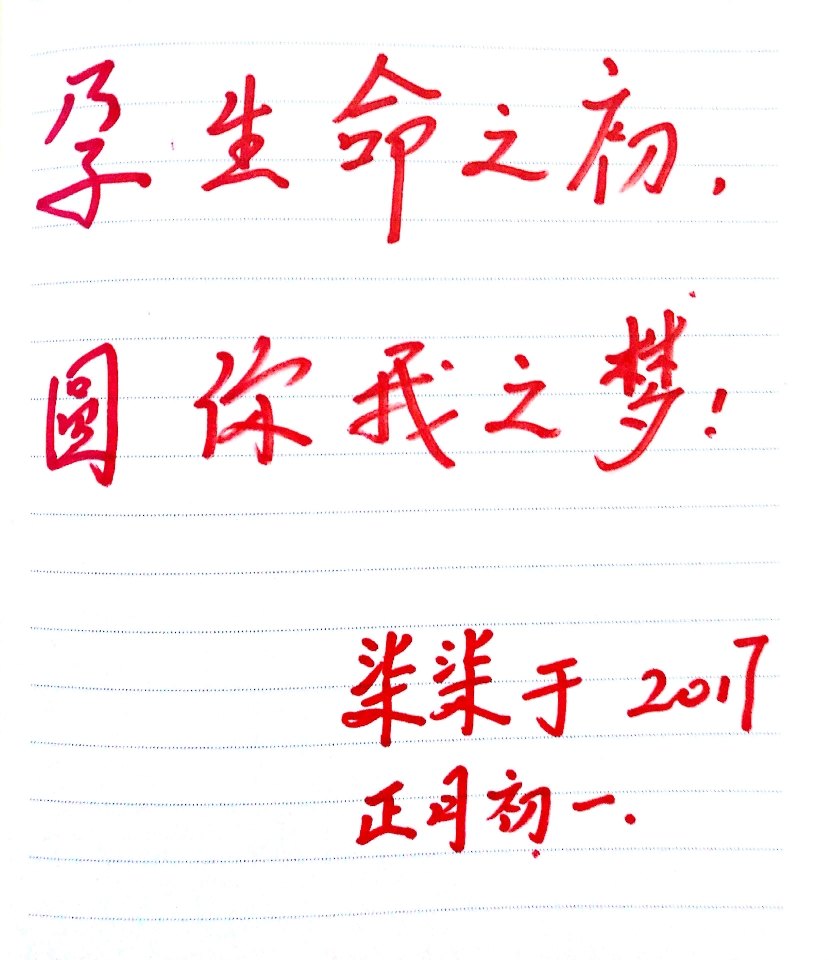 孕生命之初.
圆你我之梦!
柒柒于2017
正月初一.